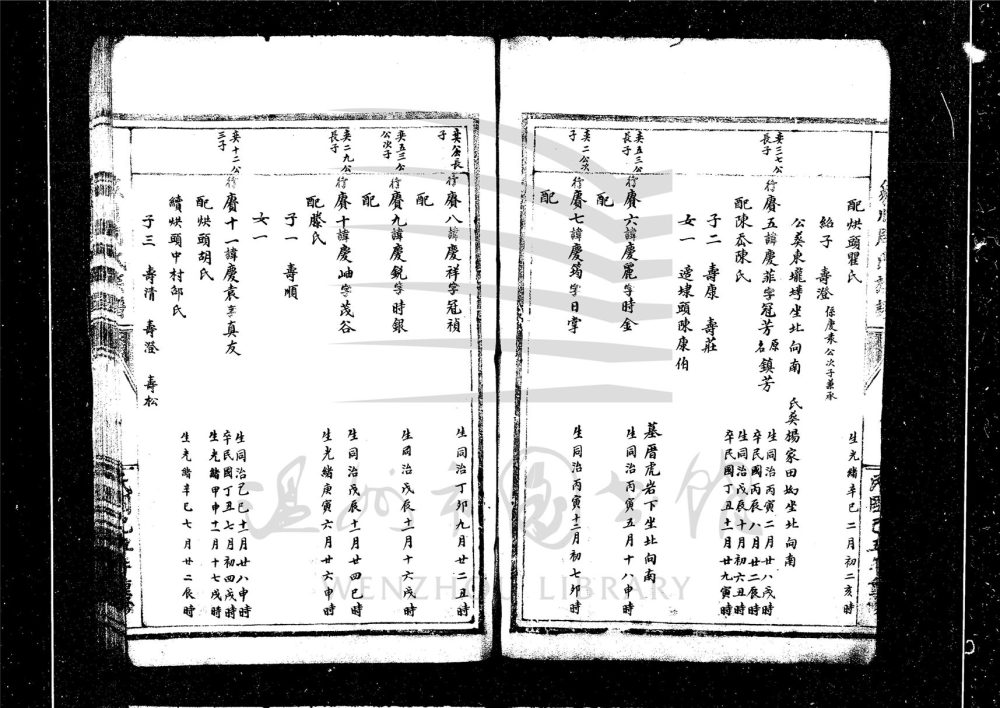 配烘頭瞿氏
生光緒辛巳二月初二亥時
紹子 壽澄 係慶袁公次子兼承
公葬東壠塆坐北向南 氏葬楊家田坳坐北向南
奕三七公長子
行賡五諱慶菲字冠芳原名鎮芳
生同治丙寅二月廿八戌時
卒民國丙辰八月廿二辰時
配陳岙陳氏
生同治戊辰十月初六丑時
卒民國丁丑十一月廿九寅時
子二 壽康 壽莊
女一 適埭頭陳康伯
墓厝虎岩下坐北向南
奕五三公長子
行賡六諱慶麗字時金
生同治丙寅五月十八申時
配
奕二公次子
行賡七諱慶筠字日掌
生同治丙寅十二月初七卯時
配
長子
行賡八諱慶祥字冠禎
生同治丁卯九月廿二丑時
配
奕五三公次子
行賡九諱慶銳字時銀
生同治戊辰十一月十六戌時
配
奕二九公長子
行賡十諱慶岫字茂谷
生同治戊辰十一月廿四巳時
配滕氏
生光緒庚寅六月廿六申時
子一 壽順
女一
奕十二公三子
行賡十一諱慶袁字真友
生同治己巳十一月廿八申時
卒民國丁丑七月初四戌時
配烘頭胡氏
生光緒甲申十一月十七戌時
續烘頭中村邵氏
生光緒辛巳七月廿二辰時
子三 壽清 壽澄 壽松
溫州市圖書館
WENZHOU LIBRARY